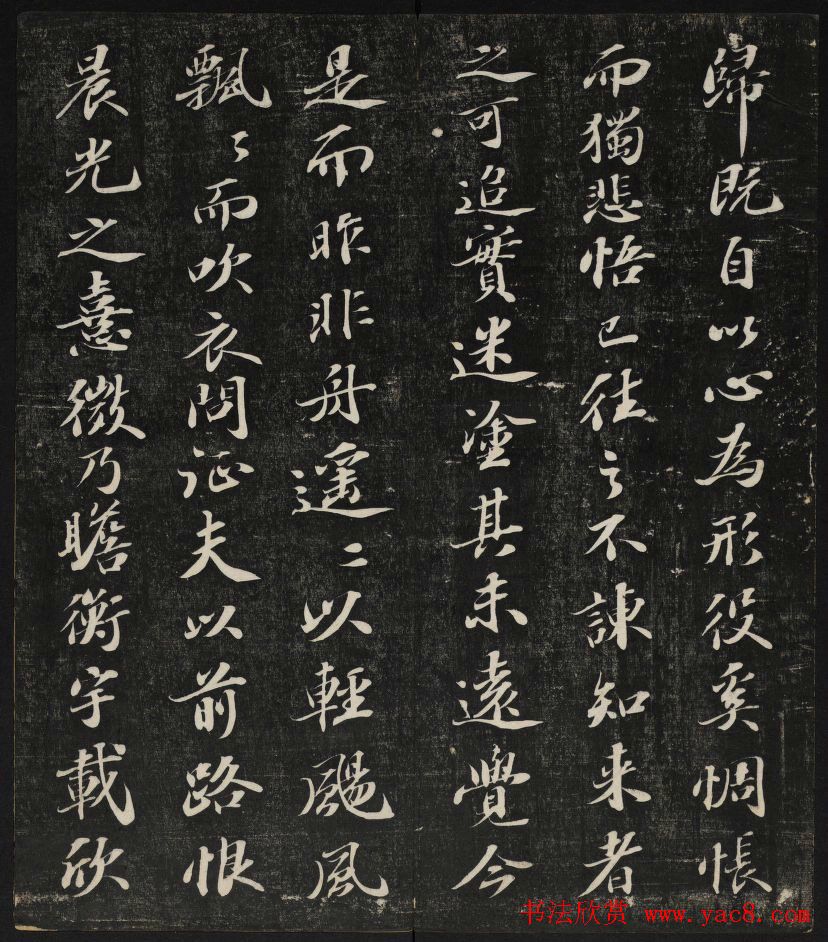 歸既自以心為形役奚惆悵
而獨悲悟已往之不諫知来者
之可追實迷塗其未遠覺今
是而昨非舟遥〻以輕颺風
飄〻而吹衣問征夫以前路恨
晨光之憙微乃瞻衡宇載欣
书法欣赏 www.yac8.com